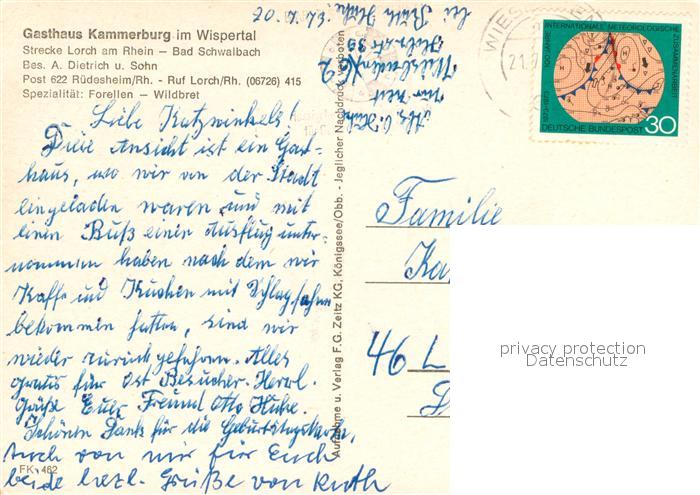 Gasthaus Kammerburg im Wispertal
Strecke Lorch am Rhein — Bad Schwalbach
Bes. A. Dietrich u. Sohn
Post 622 Rüdesheim/Rh. - Ruf Lorch/Rh. (06726) 415
Spezialität: Forellen — Wildbret
Liebe Katzwinkels!
Diese Ansicht ist ein Gast-
haus, wo wir von der Stadt
eingeladen waren und mit
einen Buß einen Ausflug unter-
nommen haben nach dem wir
Kaffe und Kuchen mit Schlagsahne
bekommen hatten, sind wir
wieder zurück gefahren. Alles
gratis für Ost Besucher. Herzl.
Grüße Euer Freund Otto
Schönen Dank für die Geburtstagskarte,
Auch von mir für Euch
beide herzl. Grüße von Ruth
FK 462
Aufnahme u. Verlag F.G. Zeitz KG, Königssee/Obb. - Jeglicher Nachdruck verboten
20.7.73
bei Ruth
Abs. O.
zur Zeit
Wiesbaden
WIES
21.7
100 JAHRE INTERNATIONALE METEOROLOGISCHE ZUSAMMENARBEIT
1873-1973
DEUTSCHE BUNDESPOST 30
Familie
Ka
46 L
privacy protection
Datenschutz